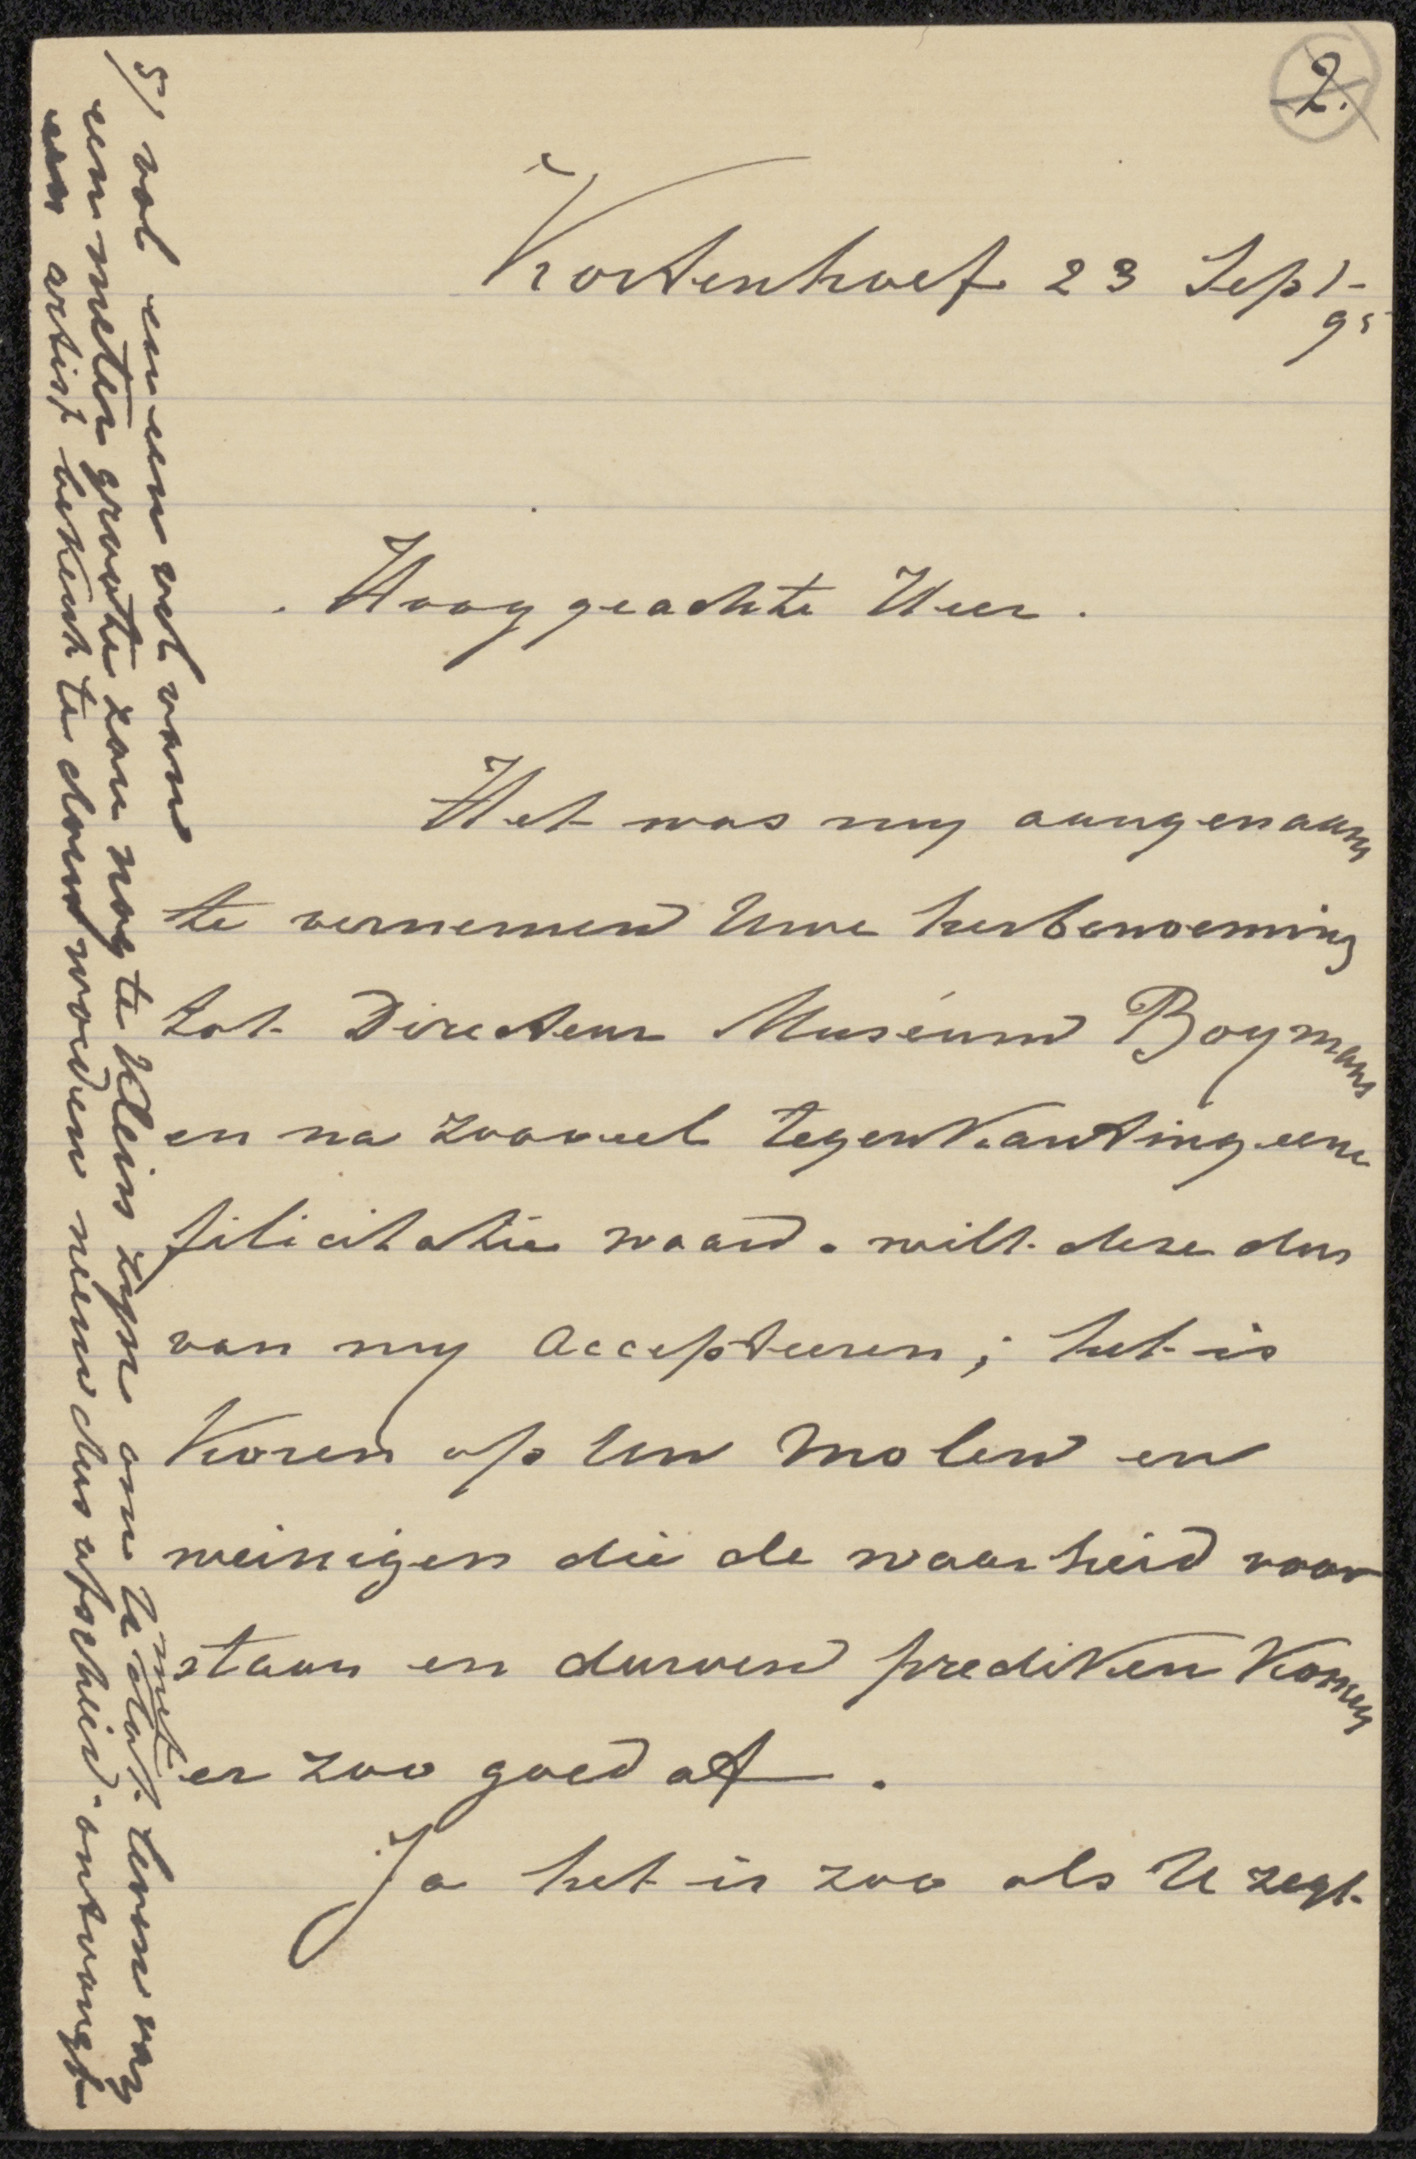 2.
Kortenhoef 23 Sept
95
Hooggeachte Heer.
Het was my aangenaam
te vernemen Uwe herbenoeming
tot Directeur Museum Boymans
en na zooveel tegenkanting eene
filicitatie waard. wilt deze dus
van my accepteeren; het is
Koren op Uw Molen en
weinigen die de waarheid voor
staan en durven prediken komen
er zoo goed af.
Ja het is zoo als U zegt
5/ vol en een vel van
een meter groote zou nog te klein zyn om U met dat leven van
een artist bekent te doen worden neem dus afscheid. ontvangt